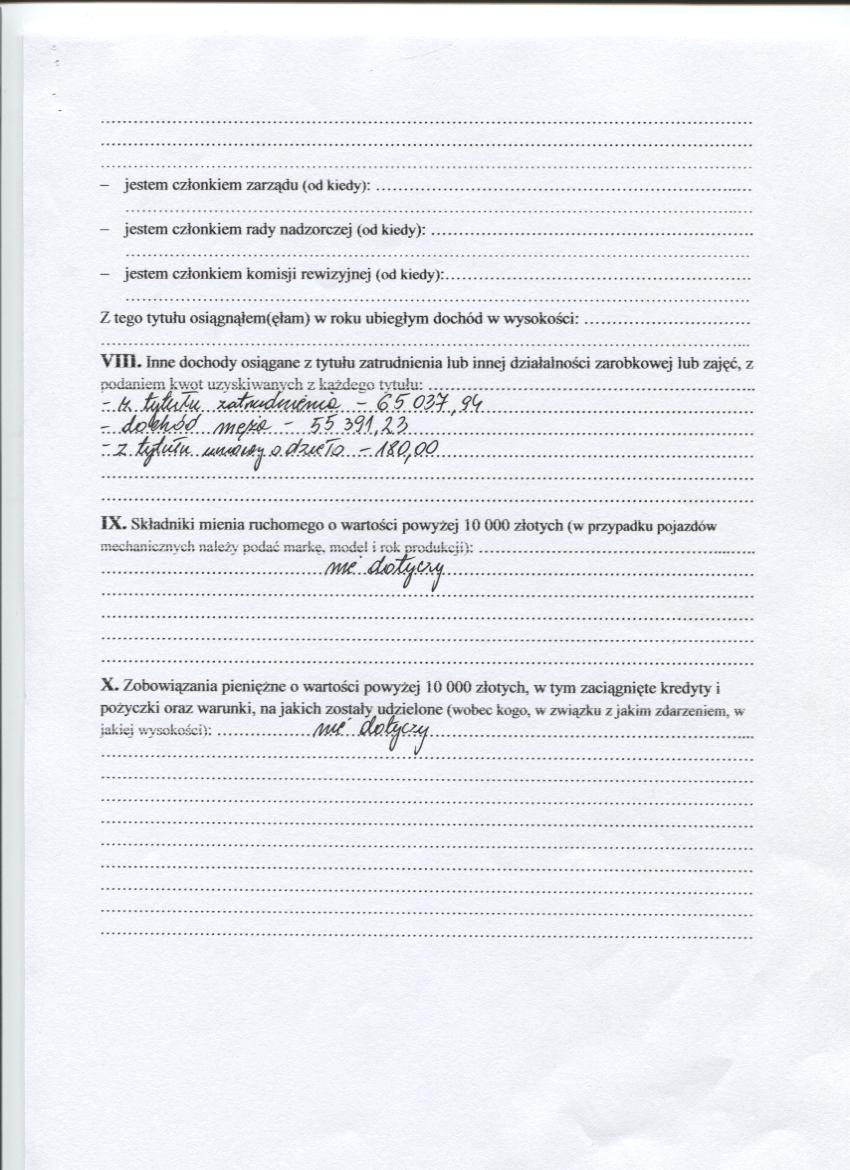 – jestem członkiem zarządu (od kiedy): ................................................
– jestem członkiem rady nadzorczej (od kiedy): ................................................
– jestem członkiem komisji rewizyjnej (od kiedy):................................................
Z tego tytułu osiągnąłem(ęłam) w roku ubiegłym dochód w wysokości: ................................
VIII. Inne dochody osiągane z tytułu zatrudnienia lub innej działalności zarobkowej lub zajęć, z
podaniem kwot uzyskiwanych z każdego tytułu: ................................................
- z tytułu zatrudnienia - 65 037,94
- dochód męża - 55 391,23
- z tytułu umowy o dzieło - 180,00
IX. Składniki mienia ruchomego o wartości powyżej 10 000 złotych (w przypadku pojazdów
mechanicznych należy podać markę, model i rok produkcji): ................................................
nie dotyczy
X. Zobowiązania pieniężne o wartości powyżej 10 000 złotych, w tym zaciągnięte kredyty i
pożyczki oraz warunki, na jakich zostały udzielone (wobec kogo, w związku z jakim zdarzeniem, w
jakiej wysokości): ................ nie dotyczy ................................